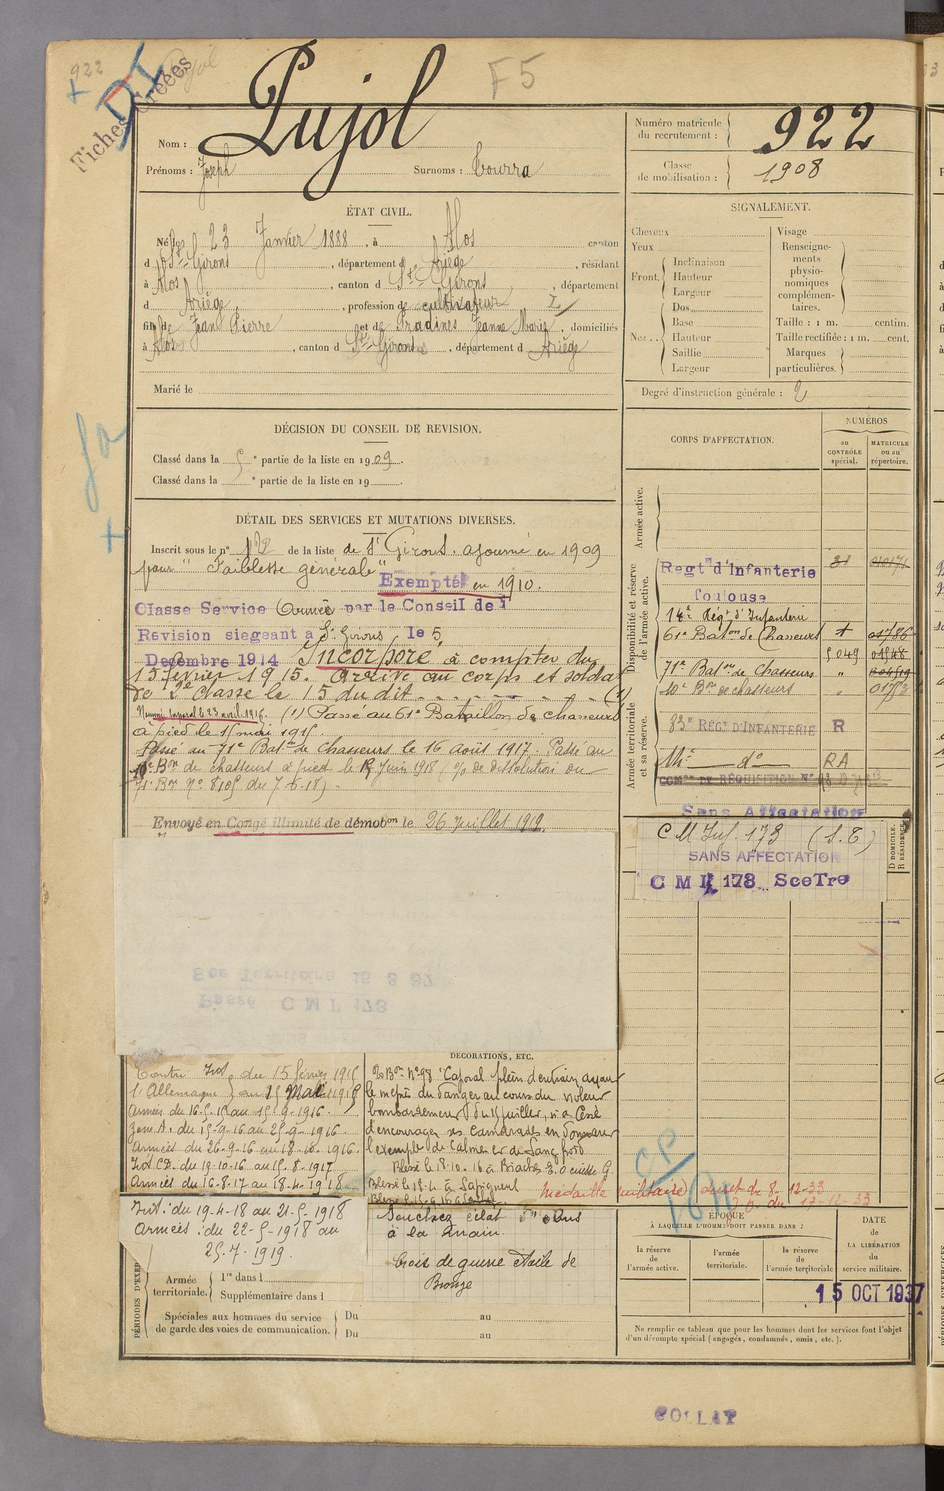 922
Pujol
F5
Fiches Créées
DI
Nom : Pujol
Prénoms : Joseph Surnoms : Courra
Numéro matricule du recrutement : 922
Classe de mobilisation : 1908
ÉTAT CIVIL.
Né le 23 Janvier 1888, à Alos canton
d St-Girons, département d Ariège, résidant
à Alos, canton d St-Girons, département
d Ariège, profession de cultivateur
fils de Jean Pierre et de Pradines Jeanne Marie, domiciliés
à Alos, canton d St-Girons, département d Ariège
Marié le
SIGNALEMENT.
Cheveux
Yeux
Front. Inclinaison
Hauteur
Largeur
Nez Dos
Base
Hauteur
Saillie
Largeur
Visage
Renseignements physionomiques complémentaires.
Taille : 1 m. centim.
Taille rectifiée : 1 m. cent.
Marques particulières.
Degré d'instruction générale : 2
DÉCISION DU CONSEIL DE REVISION.
Classé dans la 5e partie de la liste en 1909.
Classé dans la e partie de la liste en 19
CORPS D'AFFECTATION.
NUMÉROS
au CONTRÔLE spécial.
MATRICULE ou au répertoire.
Armée active.
Disponibilité et réserve de l'armée active.
Regt d'Infanterie
Toulouse
18e Régt d'Infanterie
61e Baton de Chasseurs
71e Baton de Chasseurs
10e Bon de chasseurs
Armée territoriale et sa réserve.
83e REGT D'INFANTERIE R
do RA
Sans Affectation
C M Inf. 173 (S.T)
SANS AFFECTATION
C M I 173 SceTre
D DOMICILE.
R RÉSIDENCE.
DÉTAIL DES SERVICES ET MUTATIONS DIVERSES.
Inscrit sous le n° 12 de la liste de St Girons. ajourné en 1909
pour "Faiblesse générale"
Exempté en 1910.
Classe Service Armée par le Conseil de
Revision siegeant a St Girons le 5
Decembre 1914 Incorporé à compter du
15 février 1915. Arrivé au corps et soldat
de 2e classe le 15 du dit (1)
Nommé caporal le 23 avril 1916. (1) Passé au 61e Bataillon de chasseurs
à pied le 15 mai 1915
Passé au 71e Baton de Chasseurs le 16 Août 1917. Passé au
10e Bon de chasseurs à pied le Juin 1918 (  de dissolution du
71e Bon no 8105 du 7-6-18).
Envoyé en Congé illimité de démobon le 26 Juillet 1919.
Passé C M I 173
Sce Territoire 15 3 37
DÉCORATIONS, ETC.
Contre Int. du 15 février 1915
l'Allemagne au 15 Mai 1915
Armées du 16-5-15 au 15-9-1916.
Zone A. du 15-9-16 au 25-9-1916.
Armées du 26-9-16 au 18-10-1916.
Int CD. du 19-10-16 au 15-8-1917
Armées du 16-8-17 au 18-4-1918
Int : du 19-4-18 au 21-5-1918
Armées : du 22-5-1918 au
25-7-1919.
Bon No 98 "Caporal plein d'entrain ayant
le mépris du danger au cours du violent
bombardement du 15 juillet, n'a cessé
d'encourager ses camarades en donnant
l'exemple de calme et de sang froid
Blessé le 18-10-16 à Biaches E.O cuisse G.
Blessé le 18-4 à
Souchez éclat d'obus
à la main
Croix de guerre Etoile de
Bronze
Médaille militaire décret du 8-12-33
J.O. du 17-12-33
ÉPOQUE
À LAQUELLE L'HOMME DOIT PASSER DANS :
la réserve de l'armée active.
l'armée territoriale.
la réserve de l'armée territoriale
DATE de LA LIBÉRATION du service militaire.
15 OCT 1937
PÉRIODES D'EXER
Armée territoriale. 1re dans l
Supplémentaire dans l
Spéciales aux hommes du service de garde des voies de communication. Du au
Du au
Ne remplir ce tableau que pour les hommes dont les services font l'objet
d'un décompte spécial (engagés, condamnés, omis, etc.).
COLLAT